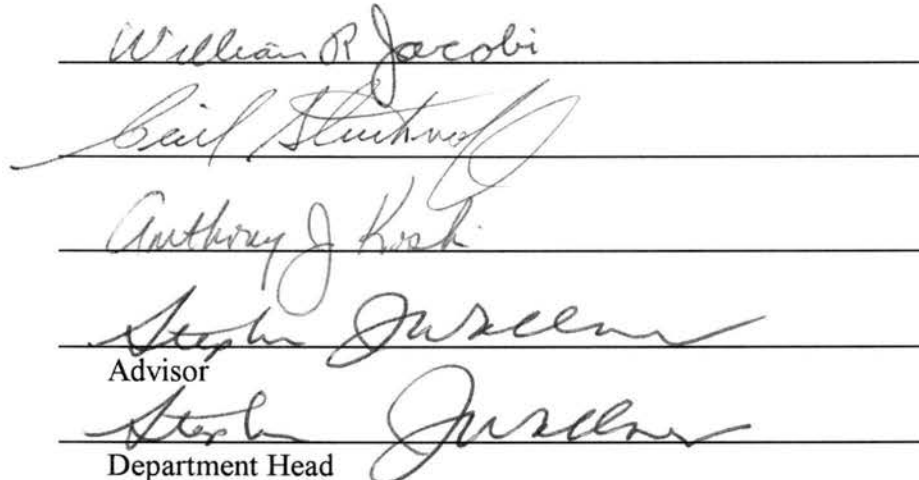 William R Jacobi
Cecil Stushnoff
Anthony J Koski
Stephen J Wallner
Advisor
Stephen J Wallner
Department Head